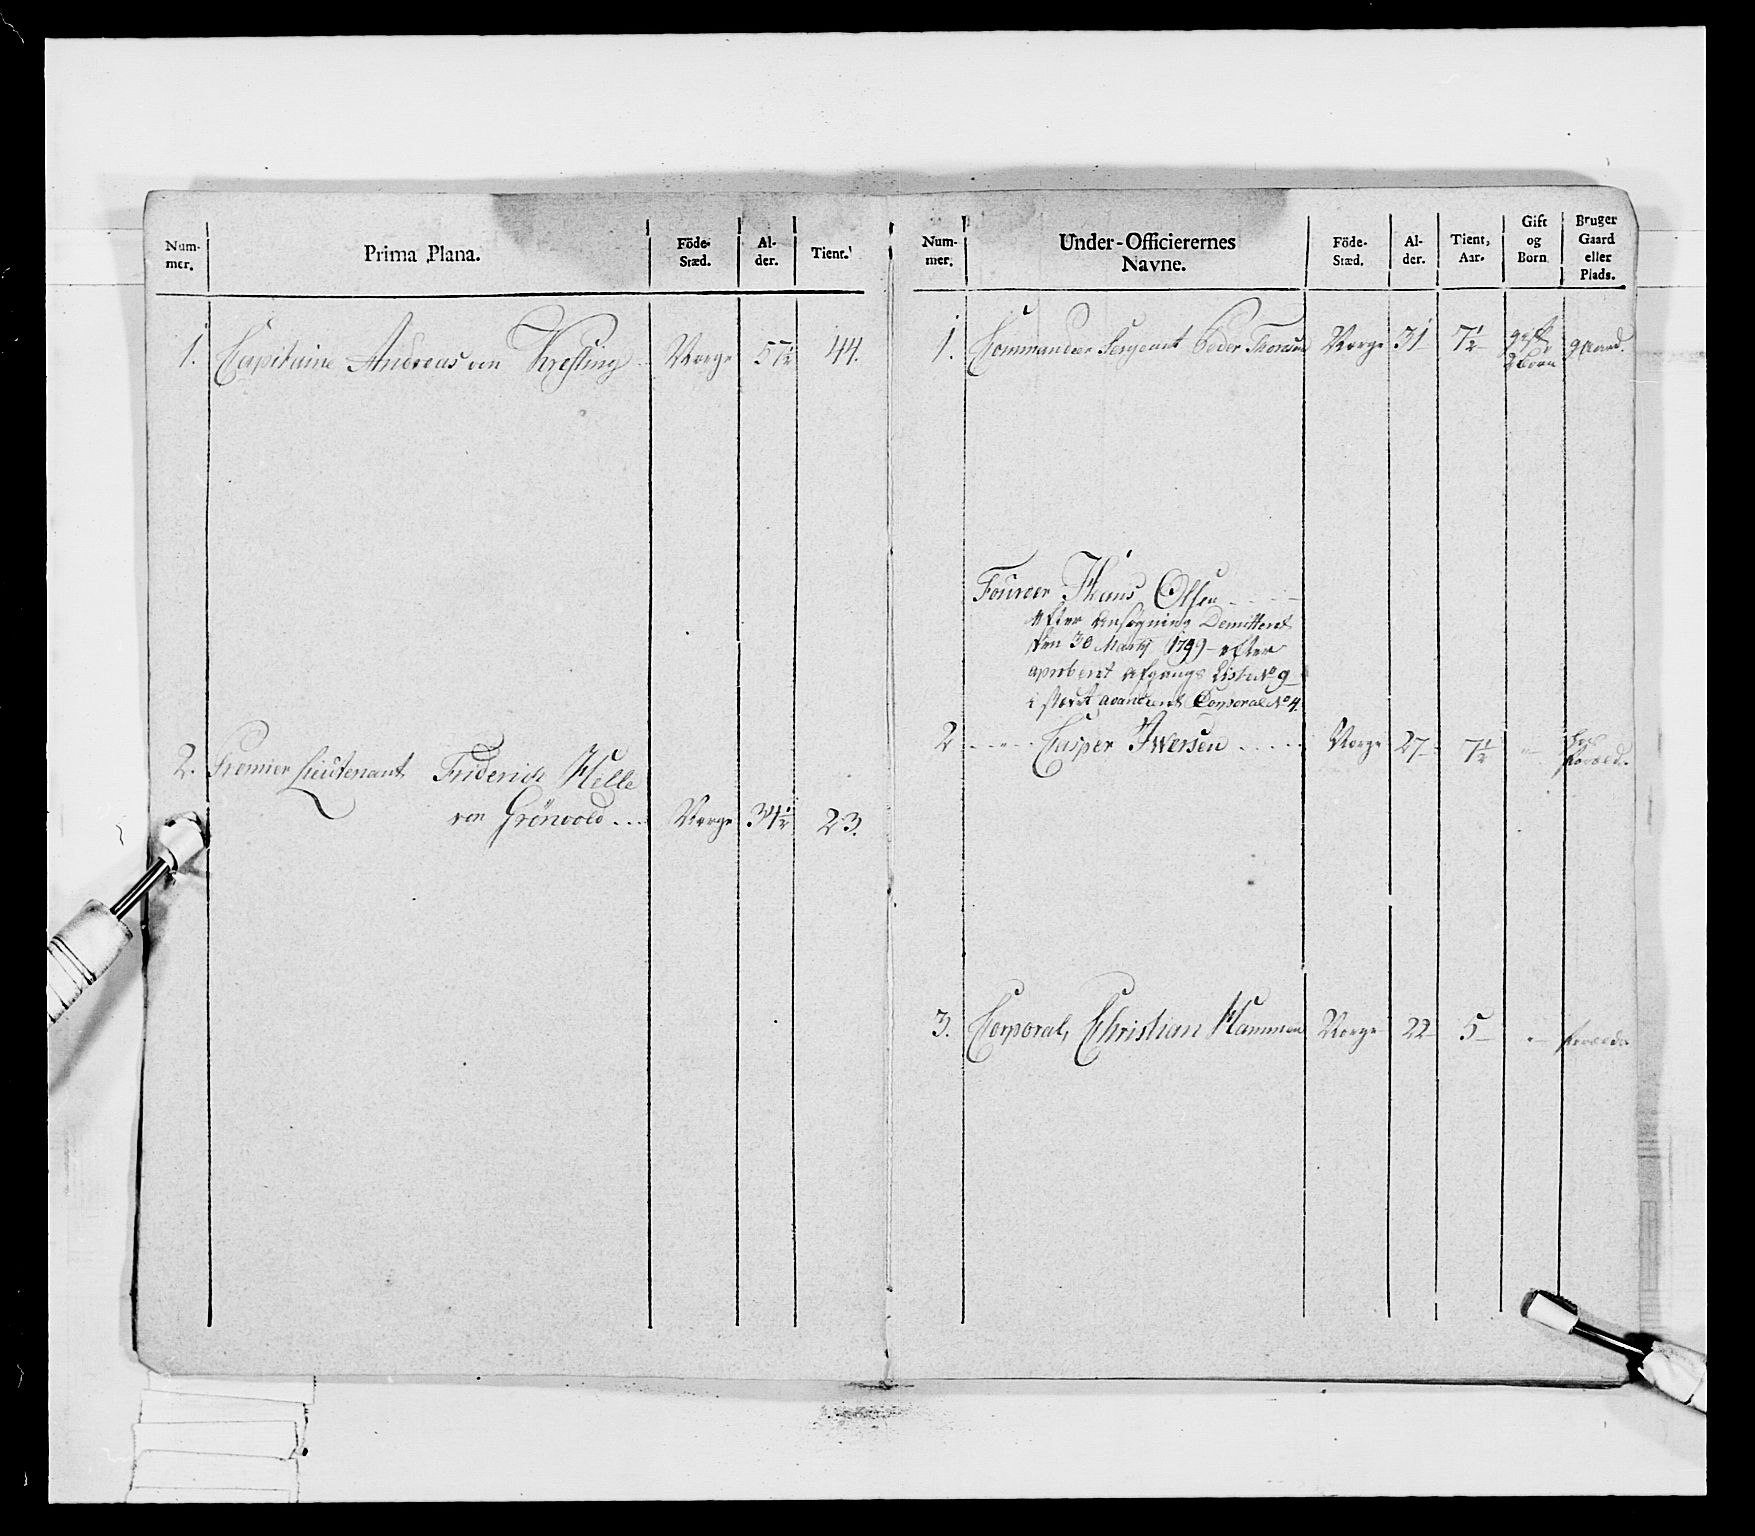 Num-
mer.
Prima Plana.
Föde-
Stæd.
Al-
der.
Tient.
1. Capitaine Andreas von Kresting Norge 57½ 44.
2. Premier Lieutenant Friderich Helle
von Grönvold ... Norge 34½ 23.
Num-
mer.
Under-Officierernes
Navne.
Föde-
Stæd.
Al-
der.
Tient,
Aar.
Gift
og
Born
Bruger
Gaard
eller
Plads.
1. Commandeer Sergeant Peder Thoresen Norge 31 7½ gift
2 Born gaard.
Foureer Hans Olsen
efter Ansögning Demitteret
den 30 Martz 1799 - efter
aproberet Afgangs Liste No 9
i stæd avanceret Corporal No 4.
2 - - - - Casper Iwersen - - - - Norge 27 - 7½ - "
Foræld.
3. Corporal, Christian Hammer Norge 22 - 5 - " - Foræld.